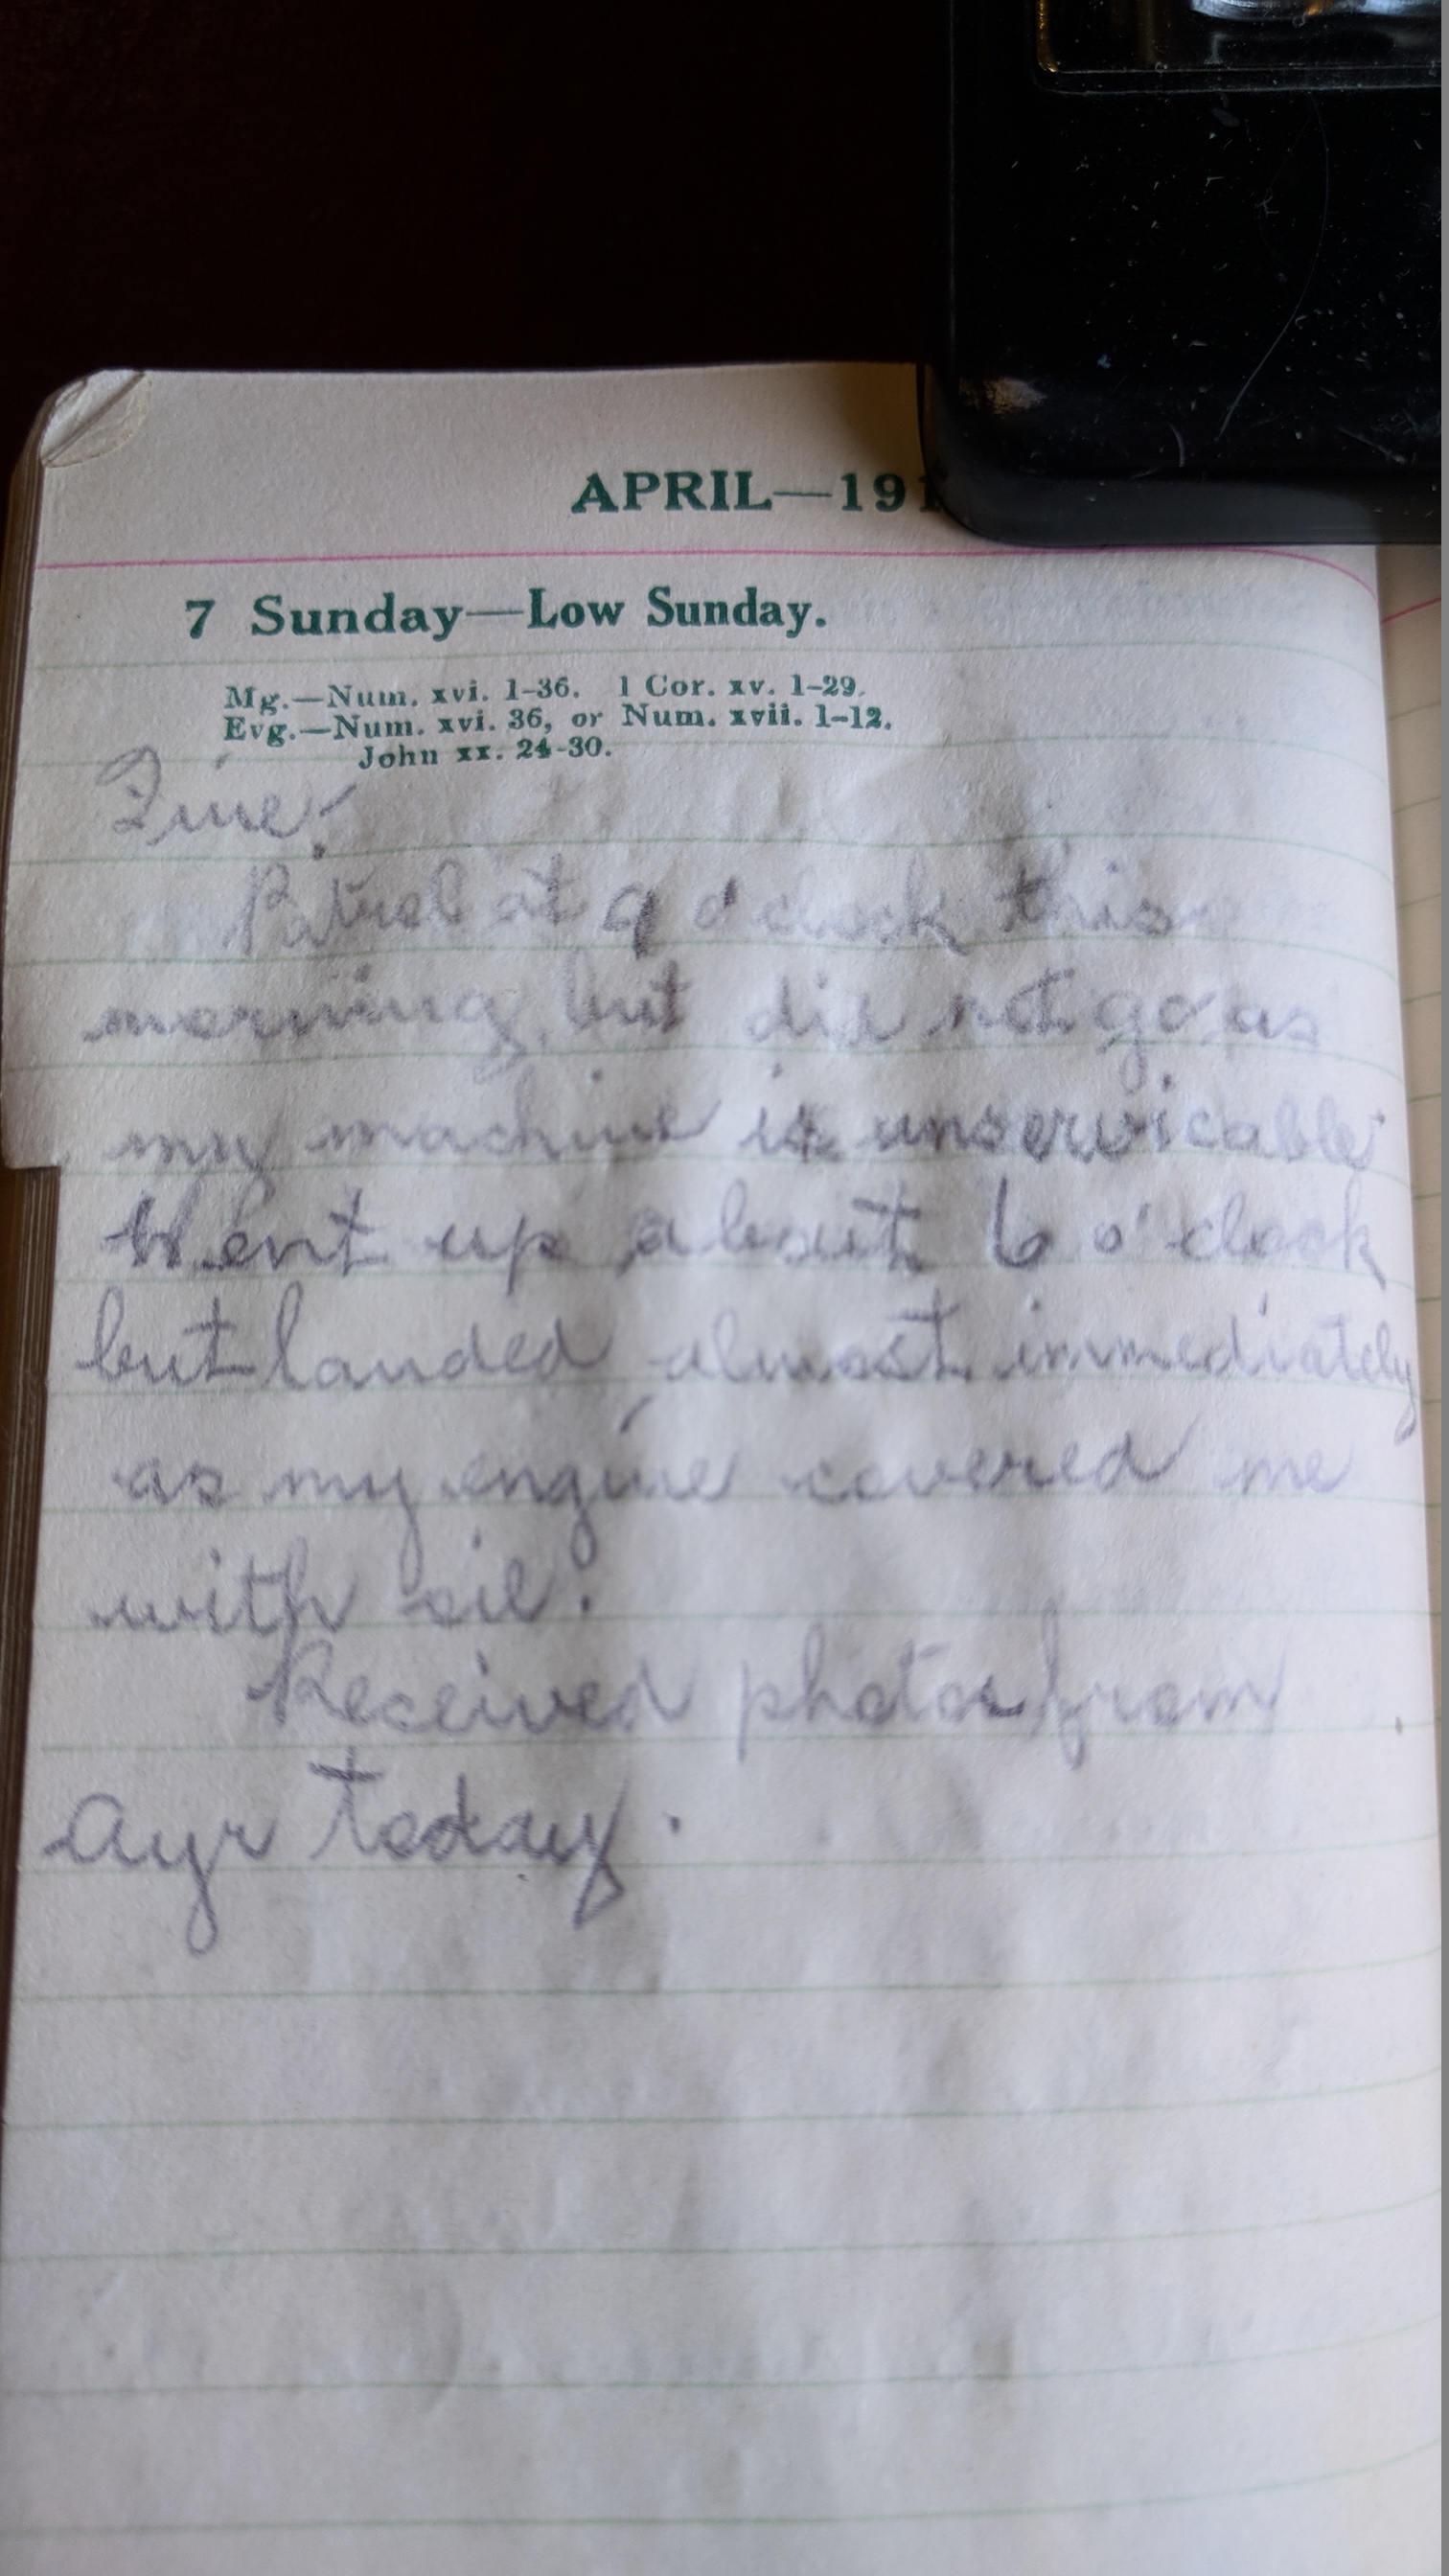 APRIL—191
7 Sunday—Low Sunday.
Mg.—Num. xvi. 1-36. 1 Cor. xv. 1-29.
Evg.—Num. xvi. 36, or Num. xvii. 1-12.
John xx. 24-30.
Fine!
Patrol at 9 o'clock this
morning but did not go as
my machine is unservicable
Went up about 6 o'clock
but landed almost immediately
as my engine covered me
with oil.
Received photos from
Ayr today.